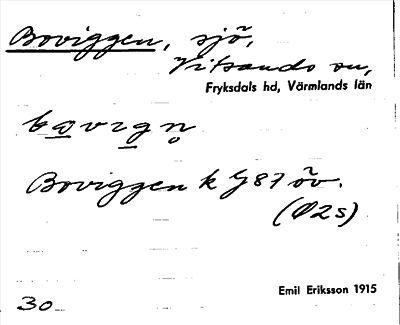 Boviggen, sjö,
Vitsands sn,
Fryksdals hd, Värmlands län
bovıgn̥
Boviggen k G87 öv.
(Ø2s)
Emil Eriksson 1915
30